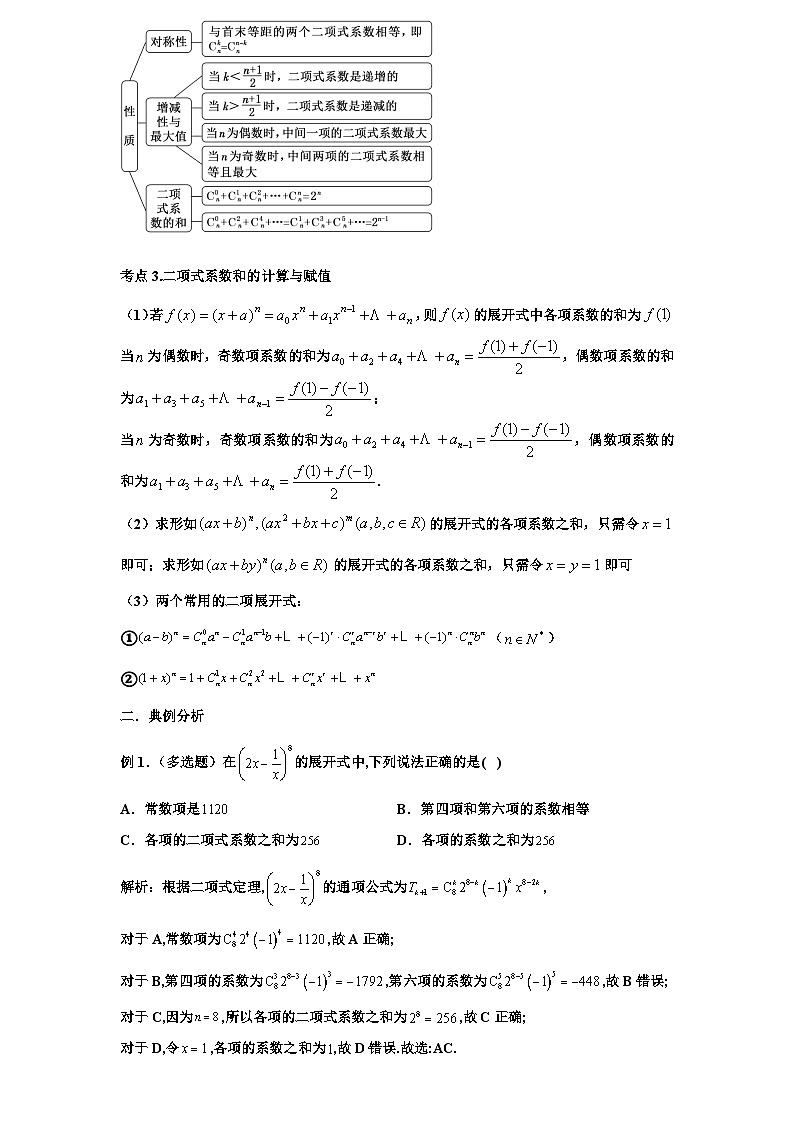 对称性
与首末等距的两个二项式系数相等，即
Cₙᵏ=Cₙⁿ⁻ᵏ
性质
增减
性与
最大值
当 k＜(n+1)/2 时，二项式系数是递增的
当 k＞(n+1)/2 时，二项式系数是递减的
当n为偶数时，中间一项的二项式系数最大
当n为奇数时，中间两项的二项式系数相
等且最大
二项
式系
数的和
Cₙ⁰+Cₙ¹+Cₙ²+⋯+Cₙⁿ=2ⁿ
Cₙ⁰+Cₙ²+Cₙ⁴+⋯=Cₙ¹+Cₙ³+Cₙ⁵+⋯=2ⁿ⁻¹
考点 3.二项式系数和的计算与赋值
（1）若 f(x)=(x+a)ⁿ=a₀xⁿ+a₁xⁿ⁻¹+Λ +aₙ,则 f(x) 的展开式中各项系数的和为 f(1)
当n 为偶数时，奇数项系数的和为a₀+a₂+a₄+Λ +aₙ=(f(1)+f(−1))/2，偶数项系数的和
为a₁+a₃+a₅+Λ +aₙ₋₁=(f(1)−f(−1))/2；
当n 为奇数时，奇数项系数的和为a₀+a₂+a₄+Λ +aₙ₋₁=(f(1)−f(−1))/2，偶数项系数的
和为a₁+a₃+a₅+Λ +aₙ=(f(1)+f(−1))/2.
（2）求形如(ax+b)ⁿ,(ax²+bx+c)ᵐ(a,b,c∈R) 的展开式的各项系数之和，只需令x=1
即可；求形如(ax+by)ⁿ(a,b∈R) 的展开式的各项系数之和，只需令x=y=1即可
（3）两个常用的二项展开式：
①(a−b)ⁿ=Cₙ⁰aⁿ−Cₙ¹aⁿ⁻¹b+L +(−1)ʳ·Cₙʳaⁿ⁻ʳbʳ+L +(−1)ⁿ·Cₙⁿbⁿ（n∈N*）
②(1+x)ⁿ=1+Cₙ¹x+Cₙ²x²+L +Cₙʳxʳ+L +xⁿ
二．典例分析
例 1.（多选题）在(2x−1/x)⁸的展开式中,下列说法正确的是( )
A．常数项是1120 B．第四项和第六项的系数相等
C．各项的二项式系数之和为256 D．各项的系数之和为256
解析：根据二项式定理,(2x−1/x)⁸的通项公式为Tₖ₊₁=C₈ᵏ2⁸⁻ᵏ(−1)ᵏx⁸⁻²ᵏ,
对于 A,常数项为C₈⁴2⁴(−1)⁴=1120,故 A 正确;
对于 B,第四项的系数为C₈³2⁸⁻³(−1)³=−1792,第六项的系数为C₈⁵2⁸⁻⁵(−1)⁵=−448,故 B 错误;
对于 C,因为n=8,所以各项的二项式系数之和为2⁸=256,故 C 正确;
对于 D,令x=1,各项的系数之和为1,故 D 错误.故选:AC.